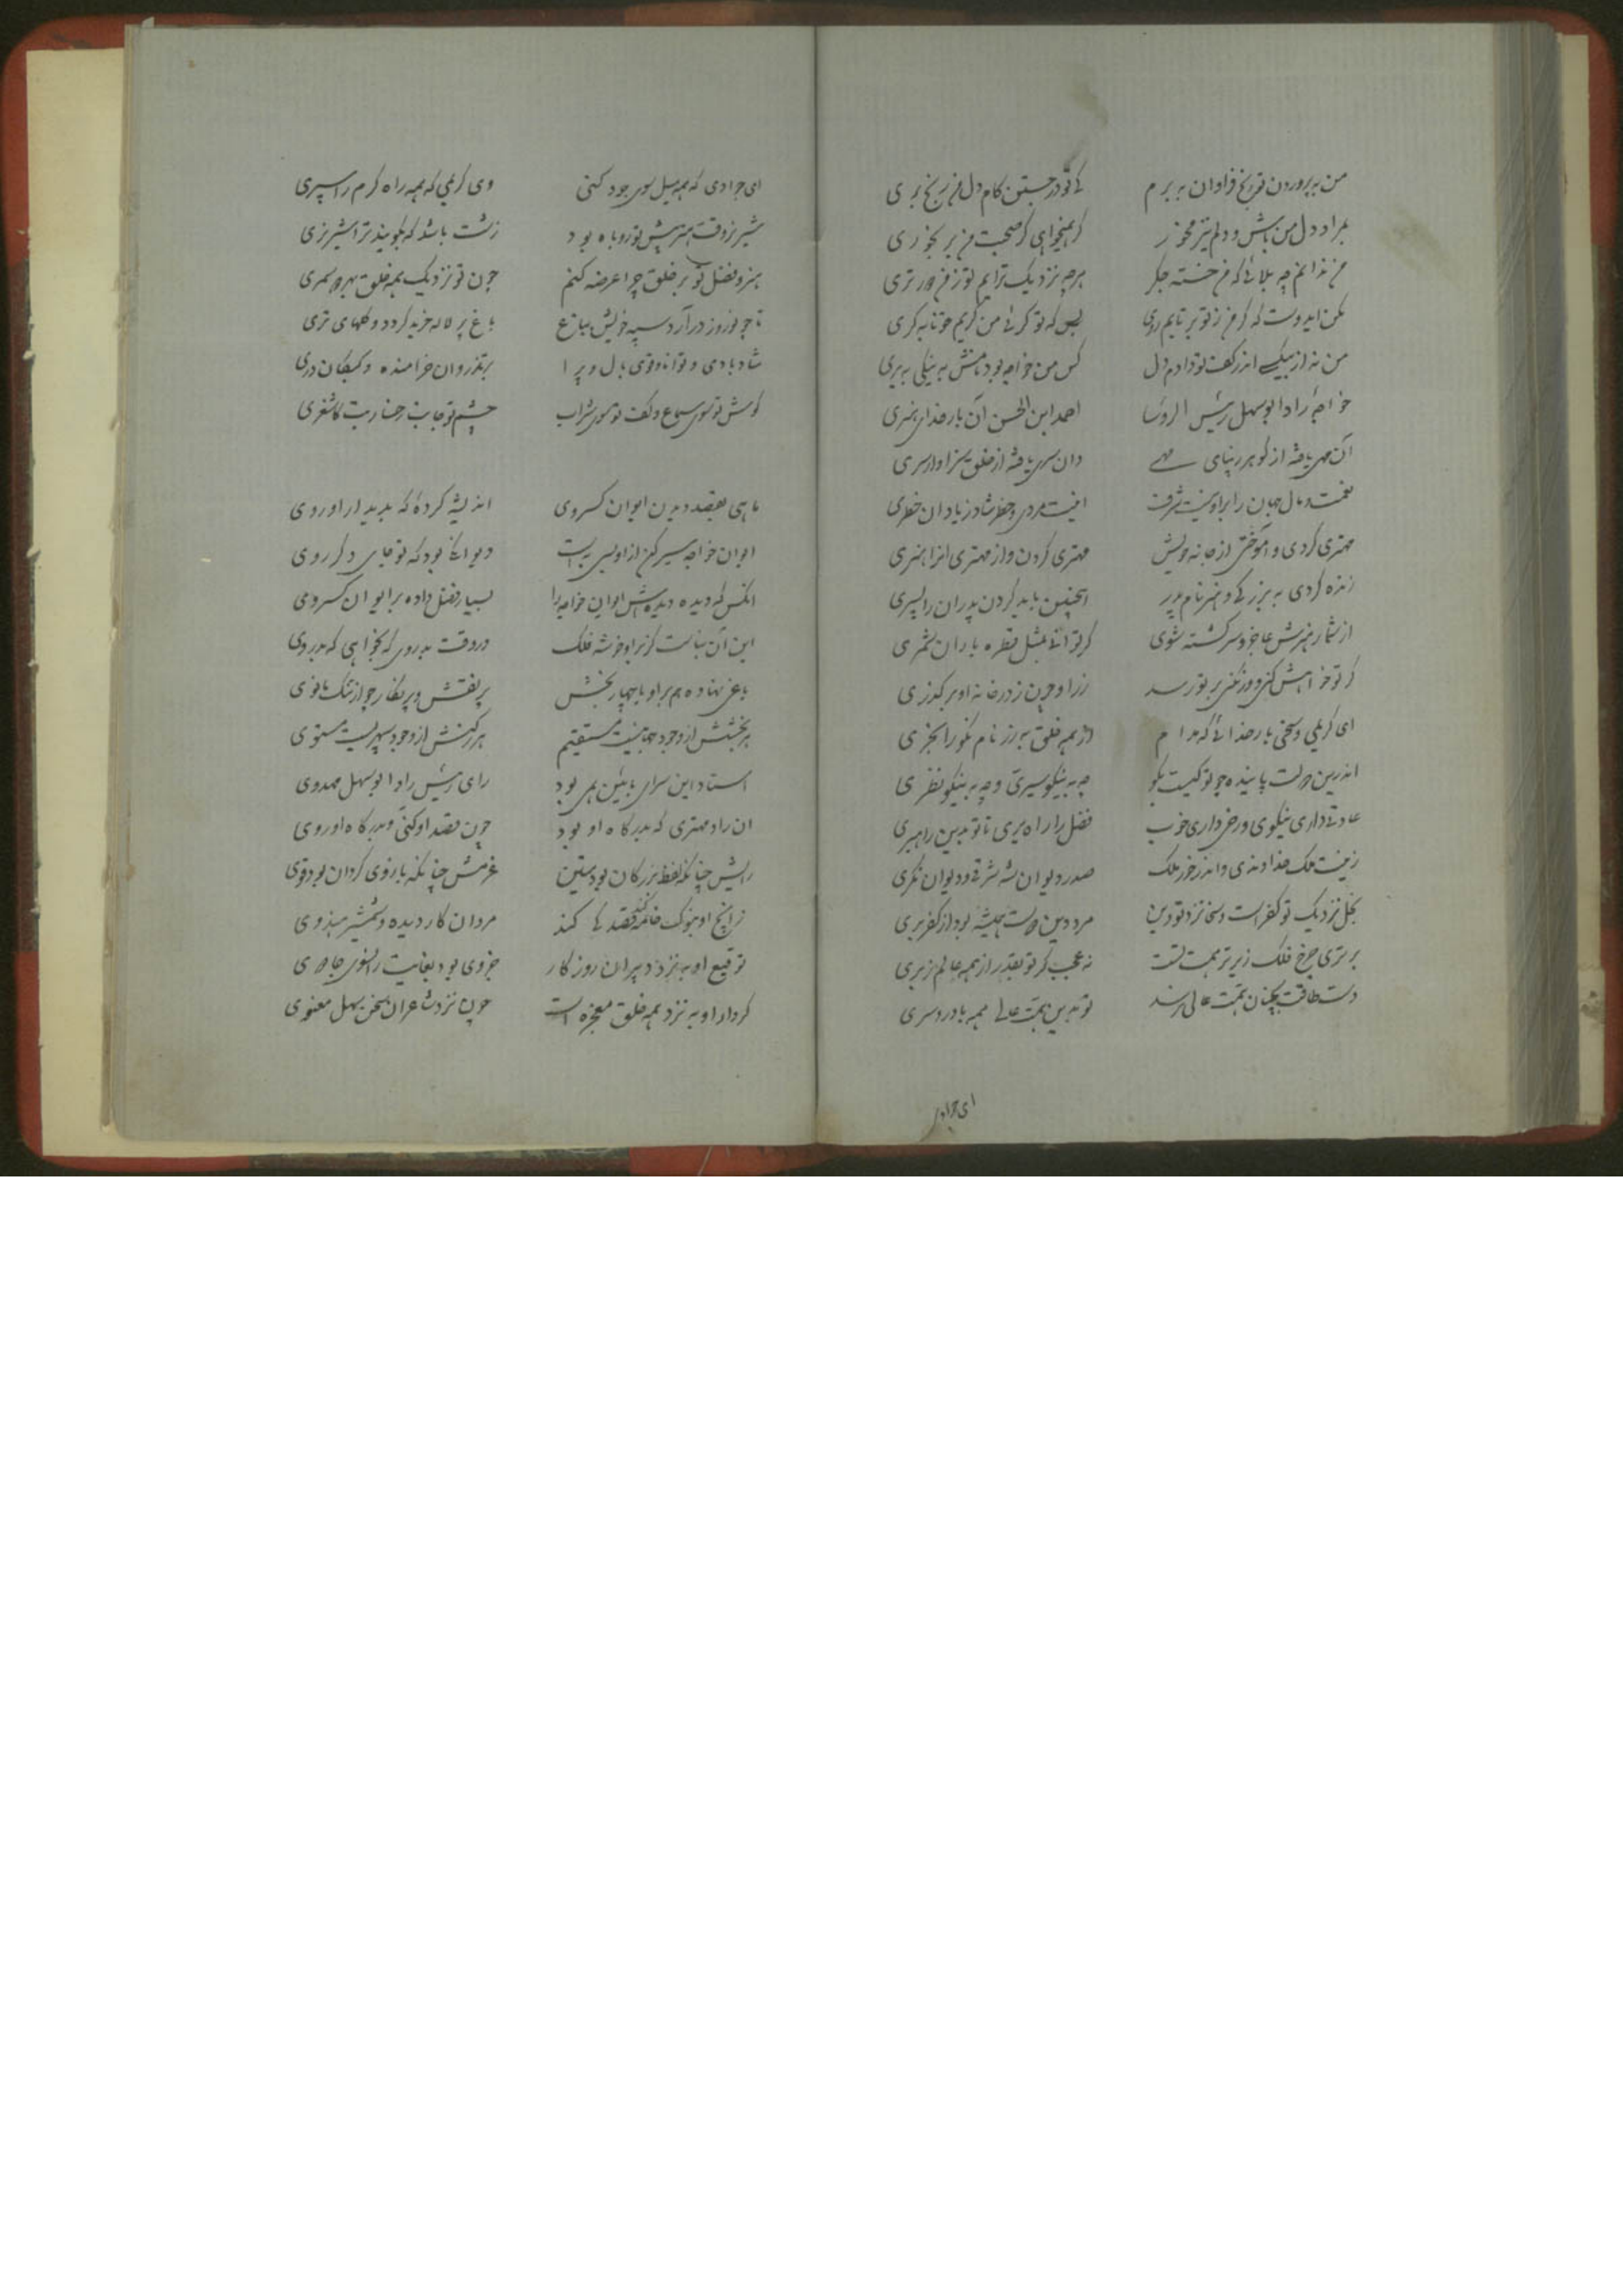 من به پروردن تو رنج فراوان ببرم کی تو در جستن کام دل من رنج بری
بمراد دل من باش و دلم نیز مخور گر همیخواهی کز صحبت من بر بخوری
من ندانم چه بلائی که من خسته جگر هرچه نزدیک ترایم تو ز من دورتری
مکن ایدوست که گر من ز تو برتابم روی بس که تو گرئی من گریم خونابه گری
من نه از بیکسی اندر کف تو دادم دل کس من خواجه بود دانش به نیکی ببری
خواجهٔ راد ابوسهل رئیس الرؤسا احمد ابن الحسن آن بار خدای هنری
آن مهی یافته از گوهر و زیبای مهی وان سری یافته از خلق سزاوار سری
نعمت و مال جهان را بر او نیست شرف اینت مردی و خطر شاد زیادان خطری
مهتری کردی و آموختی از خانه خویش مهتری کردن و از مهتری انرا هنری
زنده کردی به بزرگی و هنر نام پدر اینچنین باید کردن پدران را پسری
از شمار هنرش عاجز و سرگشته شوی گر توانی بمثل قطره باران شمری
گر تو خواهش کنی و ور نکنی بر تو رسد زر او چون ز در خانه او برگذری
ای کریمی و سخی بار خدائی که مدام از همه خلق به زر نام نکو را بخری
اندرین دولت پاینده چو تو کیست بگو چه به نیکو سیری و چه به نیکو نظری
عادتی داری نیکوی و رخی داری خوب فضل را راه بری تا تو بدین راهبری
زینت ملک خداوندی و اندر خور ملک صدر دیوان شه شرقی و دیوان نگری
بخل نزدیک تو کفر است و سخا نزد تو دین مرد دین دوست همیشه بود از کفر بری
برتری چرخ فلک زیرتر همت تست نه عجب گر تو بقدر از همه عالم زبری
دست طاقت بچنان همت عالی نرسد تو بدین همت عالی همه با درد سری
ای جوادی
ای جوادی که همه میل سوی جود کنی وی کریمی که همه راه کرم را سپری
شیر نر وقت هنر پیش تو روباه بود زشت باشد که بگویند ترا شیر نری
هنر و فضل تو بر خلق چرا عرضه کنم چون تو نزدیک همه خلق بهر دو سمری
تا چو نوروز درآرد سپه خویش بباغ باغ پر لاله خرید گردد و گلهای تری
شاد بادی و توانا و قوی با دل و پرا بر تذروان خرامنده و کبکان دری
گوش تو سوی سماع و کف تو سوی شراب چشم تو جانب رخسار بت کاشغری
ماهی بقصد دیدن ایوان کسروی اندیشه کردهٔ که بدیدار او روی
ایوان خواجه سیر کن از او بسی به است دیوانگی بود که تو جای دگر روی
انکس که دیده دیدش ایوان خواجه را بسیار فضل داده بر ایوان کسروی
این آن بناست کز بر او خوشه فلک در وقت بدروی که بخواهی که بدروی
باغی نهاده هم بر او با چهار بخش پر نقش و پر نگار چو ارتنگ مانوی
هر بخشش از وجود جهانیست مستقیم هر رکنش از وجود سپهریست مستوی
استاد این سرای باَئین همی بود رای رئیس راد ابوسهل حمدوی
ان راد مهتری که بدرگاه او بود چون قصد او کنی و بدرگاه او روی
رایش چنانکه لفظ بزرگان بود متین عزمش چنانکه بازوی گردان بود قوی
زانچ او بنوک خامه قصد کی کند مردان کاردیده و شمشیر هندوی
توقیع او به نزد دبیران روزگار جزوی بود بغایت از نسخه حاوی
کردار او به نزد همه خلق معجزه است چون نزد شاعران سخن سهل معنوی